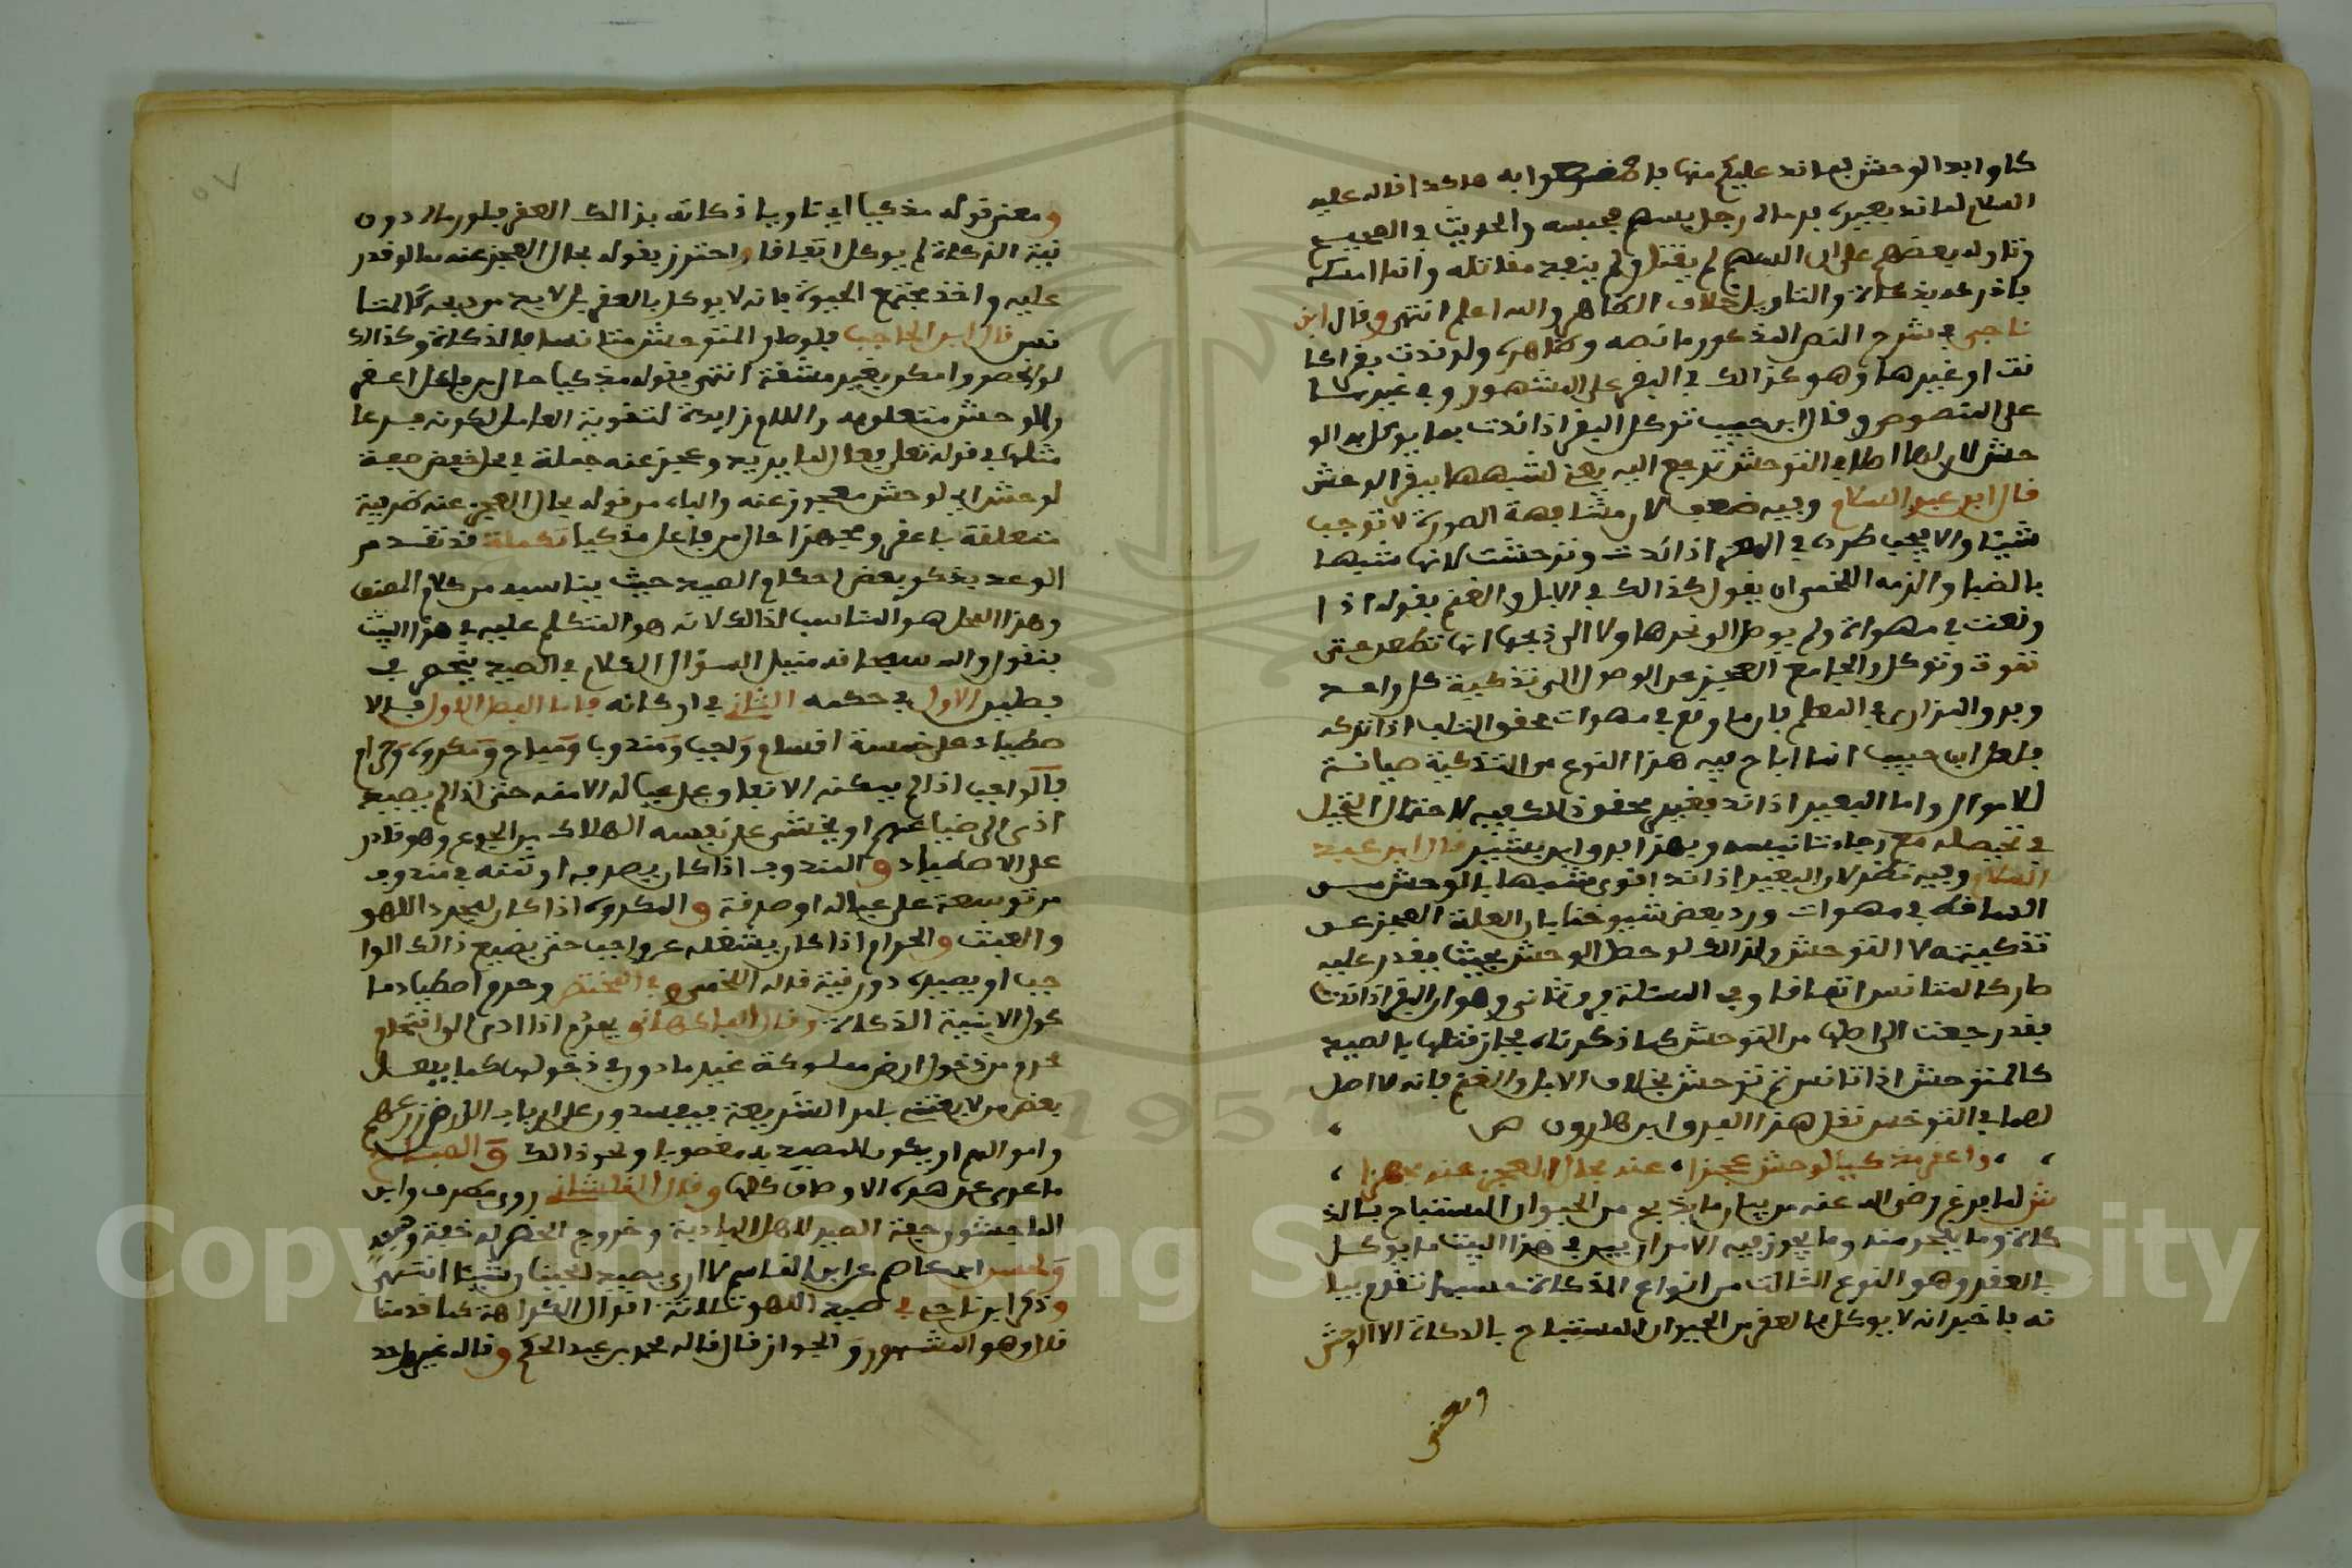 كاوابد الوحش فما ند عليكم منها فاصنعوا به هاكذا قاله عليه
السلام لما ند بعير، فرماه رجل بسهم فحبسه والحديث في الصحيح
وتاوله بعضهم على ان السهم لم يقتل ولم ينفذ مقاتله وانما امسكه
فادرك بذكاة والتاويل خلاف الظاهر والله اعلم انتهى وقال ابن
ناجي في شرح النص المذكور ما نصه وظاهره ولو ندت بقرا كا
نت او غيرها وهو كذالك في البقر على المشهور وفي غيرها
على المنصوص وقال ابن حبيب توكل البقر اذا ندت بما يوكل به الو
حش لان لها اصلا في التوحش ترجع اليه يعني لشبهها ببقر الوحش
قال ابن عبد السلام وفيه ضعف لان مشابهة الصورة لا توجب
شيئا والا يجب طرده في المعز اذا ندت وتوحشت لانها شبيها
بالضبا والزمه اللخمي ان يقول كذالك في الابل والغنم بقوله اذا
وقعت في مهواة ولم يوصل الى نحرها ولا الى ذبحها انها تطعن حتى
تموت وتوكل والجامع العجز عن الوصول الى تذكية كل واحد
وفرق المازري في المعلم بان ما وقع في مهوات محقق التلف اذا تركه
فلعل ابن حبيب انما اباح فيه هذا النوع من التذكية صيانة
للاموال واما البعير اذا ند فغير محقق ذالك فيه لاحتمال التحيل
في تحصيله مع رجاء تانيسه وبهذا فرق ابن بشير قال ابن عبد
السلام وفيه نظر لان البعير اذا ند اقوى شبها بالوحش من
الساقط في مهوات ورد بعض شيوخنا بان العلة العجز عن
تذكيته لا التوحش ولذالك لو حصل الوحش بحيث يقدر عليه
صار كالمتانس اتفاقا وفي المسئلة فرق ثاني وهو ان البقر اذا ندت
فقد رجعت الى اصلها من التوحش كما ذكرناه فجاز قتلها بالصيد
كالمتوحش اذا تانس ثم توحش بخلاف الابل والغنم فانه لا اصل
لهما في التوحش نقل هذا الفرق ابن هارون ص
واعقر مذكيا لوحش عجزا عنه بحال العجز عنه مجهزا
ش لما فرغ رضي الله عنه من بيان ما يذبح من الحيوان المستباح بالذ
كاة وما ينحر منه وما يجوز فيه الامران بين في هذا البيت ما يوكل
بالعقر وهو النوع الثالث من انواع الذكاة حسبما تقدم بيا
نه فاخبر انه لا يوكل بالعقر من الحيوان المستباح بالذكاة الا الوحش
ومعنى
ومعنى قوله مذكيا اي ناويا ذكاته بذالك العقر فلو رماه دون
نية الذكاة لم يوكل اتفاقا واحترز بقوله بحال العجز عنه مما لو قدر
عليه واخذ مجتمع الحيوة فانه لا يوكل بالعقر بل لا بد من ذبحه كالمتا
نس قال ابن الحاجب فلو صار المتوحش متانسا فالذكاة وكذالك
لو انحصر وامكن بغير مشقة انتهى فقوله مذكيا حال من فاعل اعقر
وللوحش متعلق به واللام زايدة لتقوية العامل لكونه فرعا
مثلها في قوله تعلى فعال لما يريد وعجز عنه جملة في محل خفض صفة
لوحش اي لوحش معجوز عنه والباء من قوله بحال العجز عنه ظرفية
متعلقة باعقر ومجهزا حال من فاعل مذكيا تكملة قد تقدم
الوعد بذكر بعض احكام الصيد حيث يناسبه من كلام المصنف
وهذا المحل هو المناسب لذالك لانه هو المتكلم عليه في هذا البيت
فنقول والله سبحانه منيل السؤال الكلام في الصيد ينحصر في
فصلين الاول في حكمه الثاني في اركانه فاما الفصل الاول فالا
صطياد على خمسة اقسام واجب ومندوب ومباح ومكروه وحرام
فالواجب اذا لم يمكنه الانفاق على عياله الا منه حتى اذا لم يصيد
ادى الى ضياعهم او يخشى على نفسه الهلاك من الجوع وهو قادر
على الاصطياد والمندوب اذا كان يصرفه او ثمنه في مندوب
من توسعة على عياله او صدقة والمكروه اذا كان لمجرد اللهو
والعبث والحرام اذا كان يشغله عن واجب حتى يضيع ذالك الوا
جب او يصيده دون نية قاله اللخمي وفي المختصر وحرم اصطياد ما
كول الا بنية الذكاة وقال الفاكهاني يحرم اذا ادى الى اقتحام
محرم من دخول ارض مملوكة غير ماذون في دخولها كما يفعل
بعض من لا يعتني بامر الشريعة فيفسدون على ارباب الارض زرعهم
واموالهم او يكون المصيد به مغصوبا ونحو ذالك والمباح
ما عرى عن هذه الاوصاف كلها وقال القلشاني روى مطرف وابن
الماجشون خفة الصيد لاهل البادية وخروج الحضر له خفة
ابن القاسم لا ارى بصيد الحيتان شيئا انتهى
وذكر ابن ناجي في صيد اللهو ثلاثة اقوال الكراهة كما قدمنا
قال وهو المشهور والجواز قال قاله محمد بن عبد الحكم وقاله غير واحد